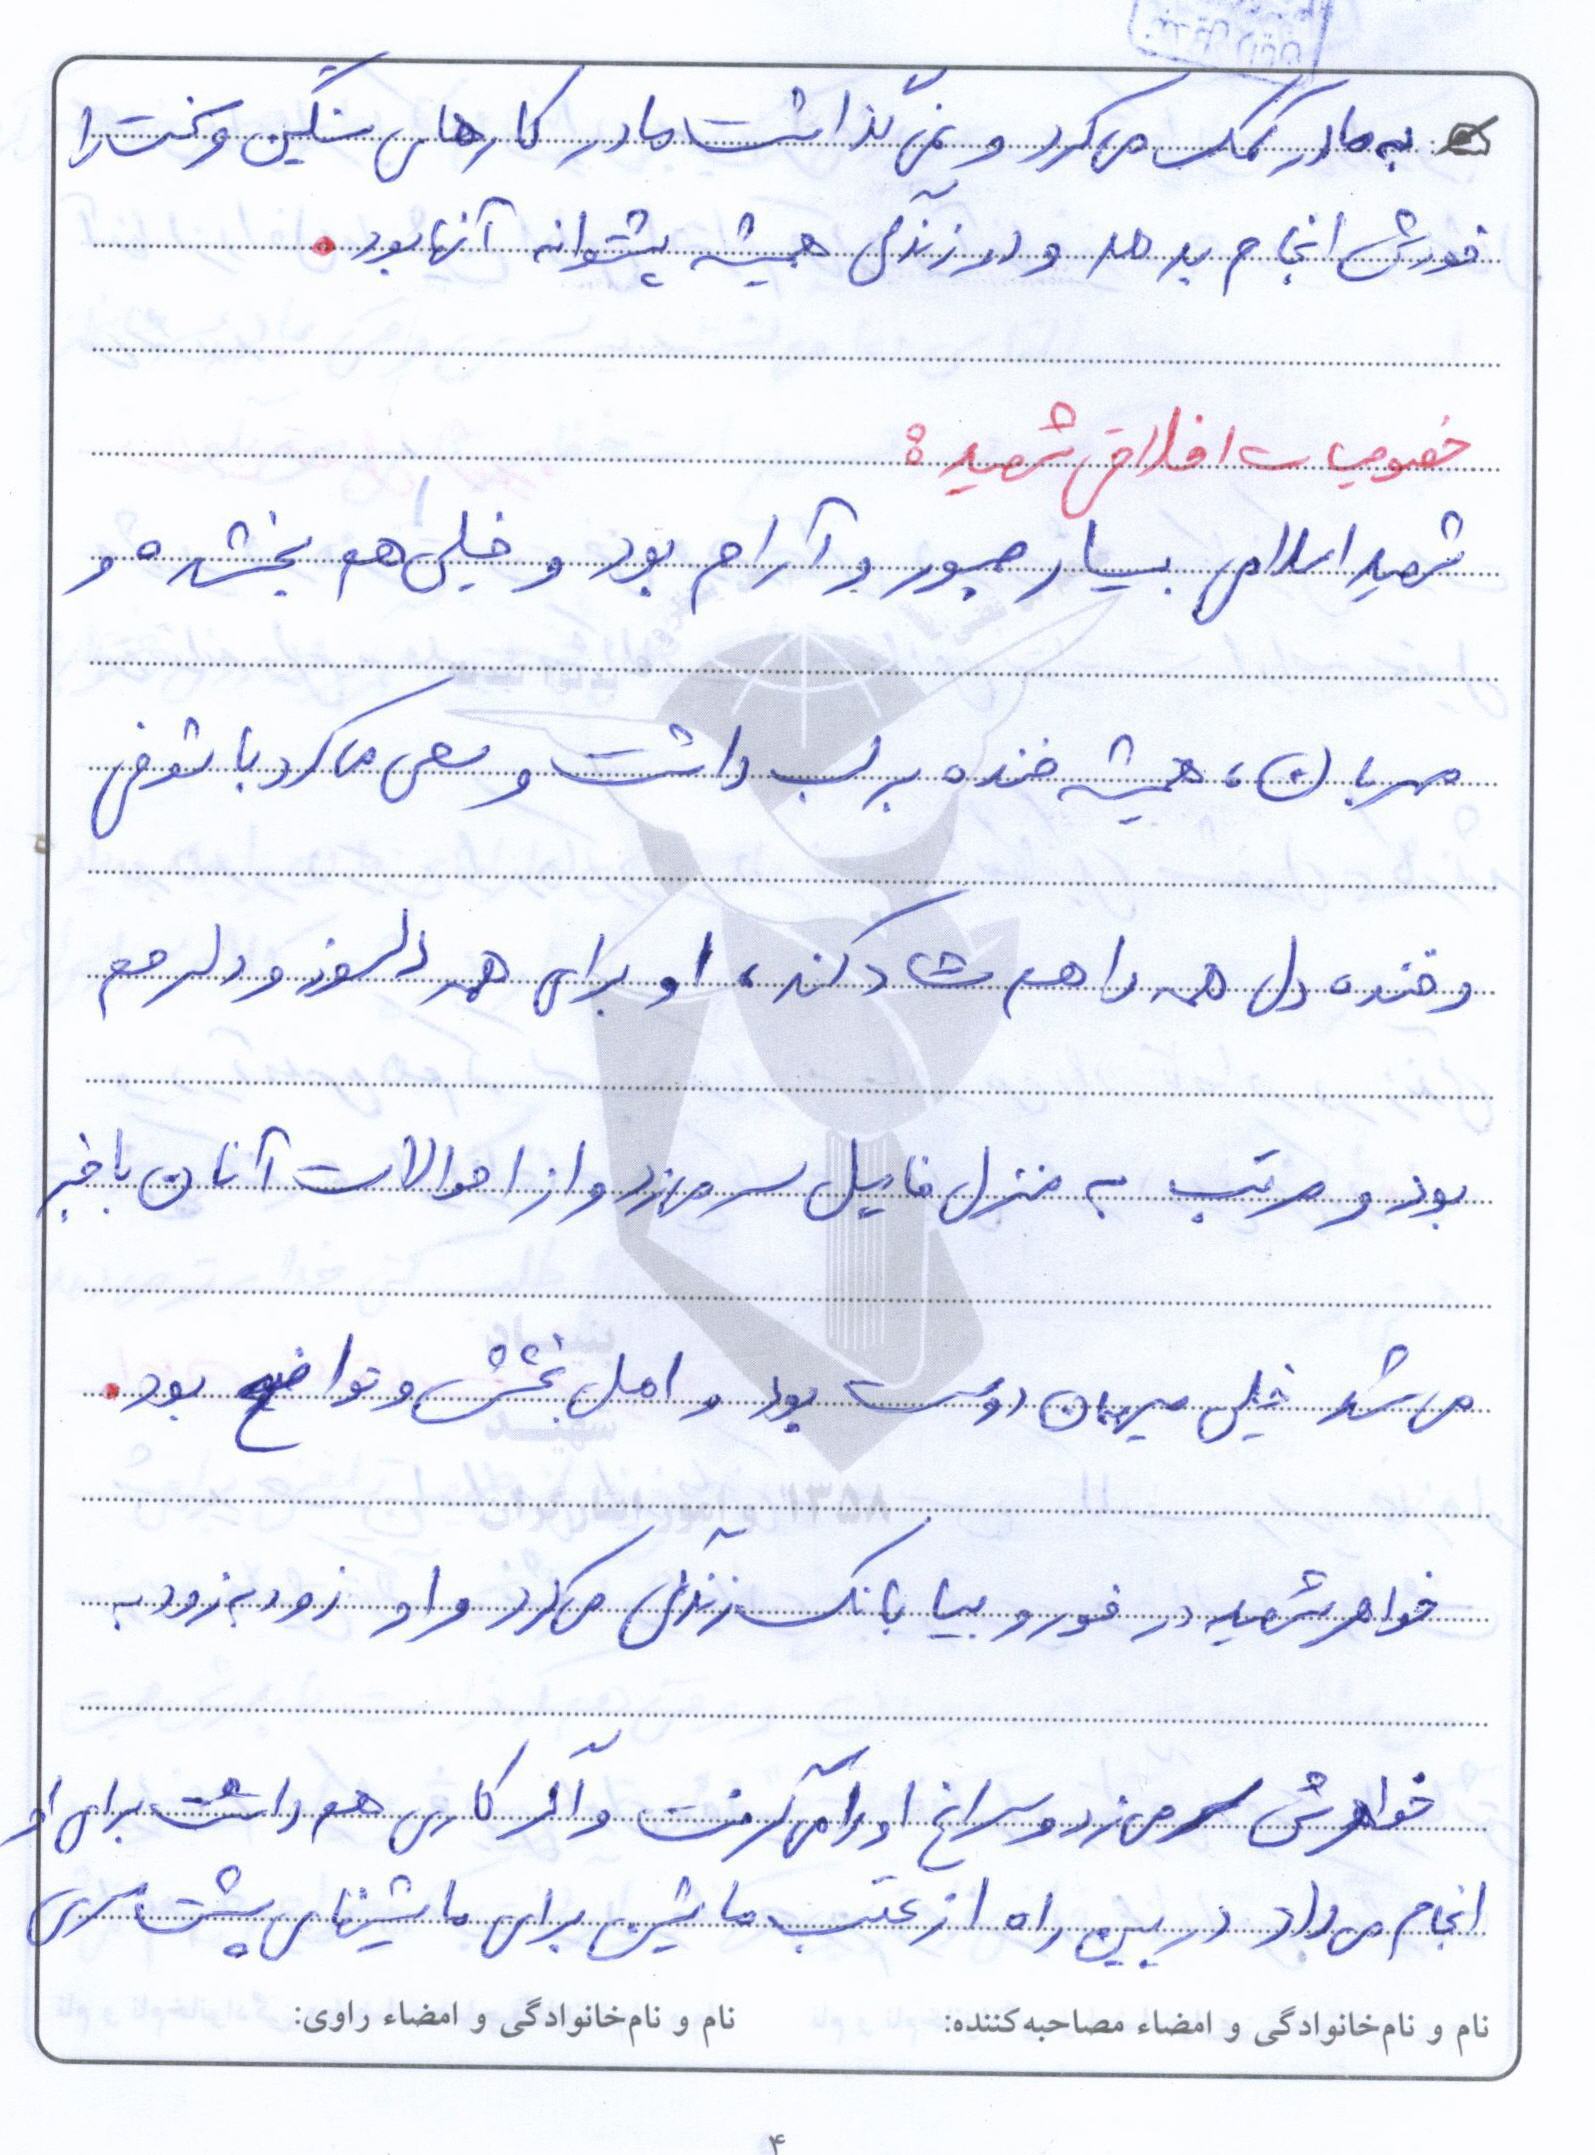 به مادر کمک می‌کرد و نمی‌گذاشت مادر کارهای سنگین و سخت را
خودش انجام بدهد و در زندگی همیشه پشتوانه آنها بود.
خصوصیات اخلاقی شهید:
شهید اسلامی بسیار صبور و آرام بود و خیلی هم بخشنده و
مهربان، همیشه خنده بر لب داشت و سعی می‌کرد با شوخی
و خنده دل همه را هم شاد کند، او برای همه دلسوز و دلرحم
بود و مرتب به منزل فامیل سر می‌زد و از احوالات آنان باخبر
می‌شد خیلی میهمان دوست بود و اهل بخشش و تواضع بود.
خواهر شهید در خور و بیابانک زندگی می‌کرد و او زود به زود به
خواهرش سر می‌زد و سراغ او را می‌گرفت و اگر کاری هم داشت برای او
انجام می‌داد در بین راه از عقب ماشین برای ماشینهای پشت سری
نام و نام‌خانوادگی و امضاء مصاحبه‌کننده: نام و نام‌خانوادگی و امضاء راوی:
۴